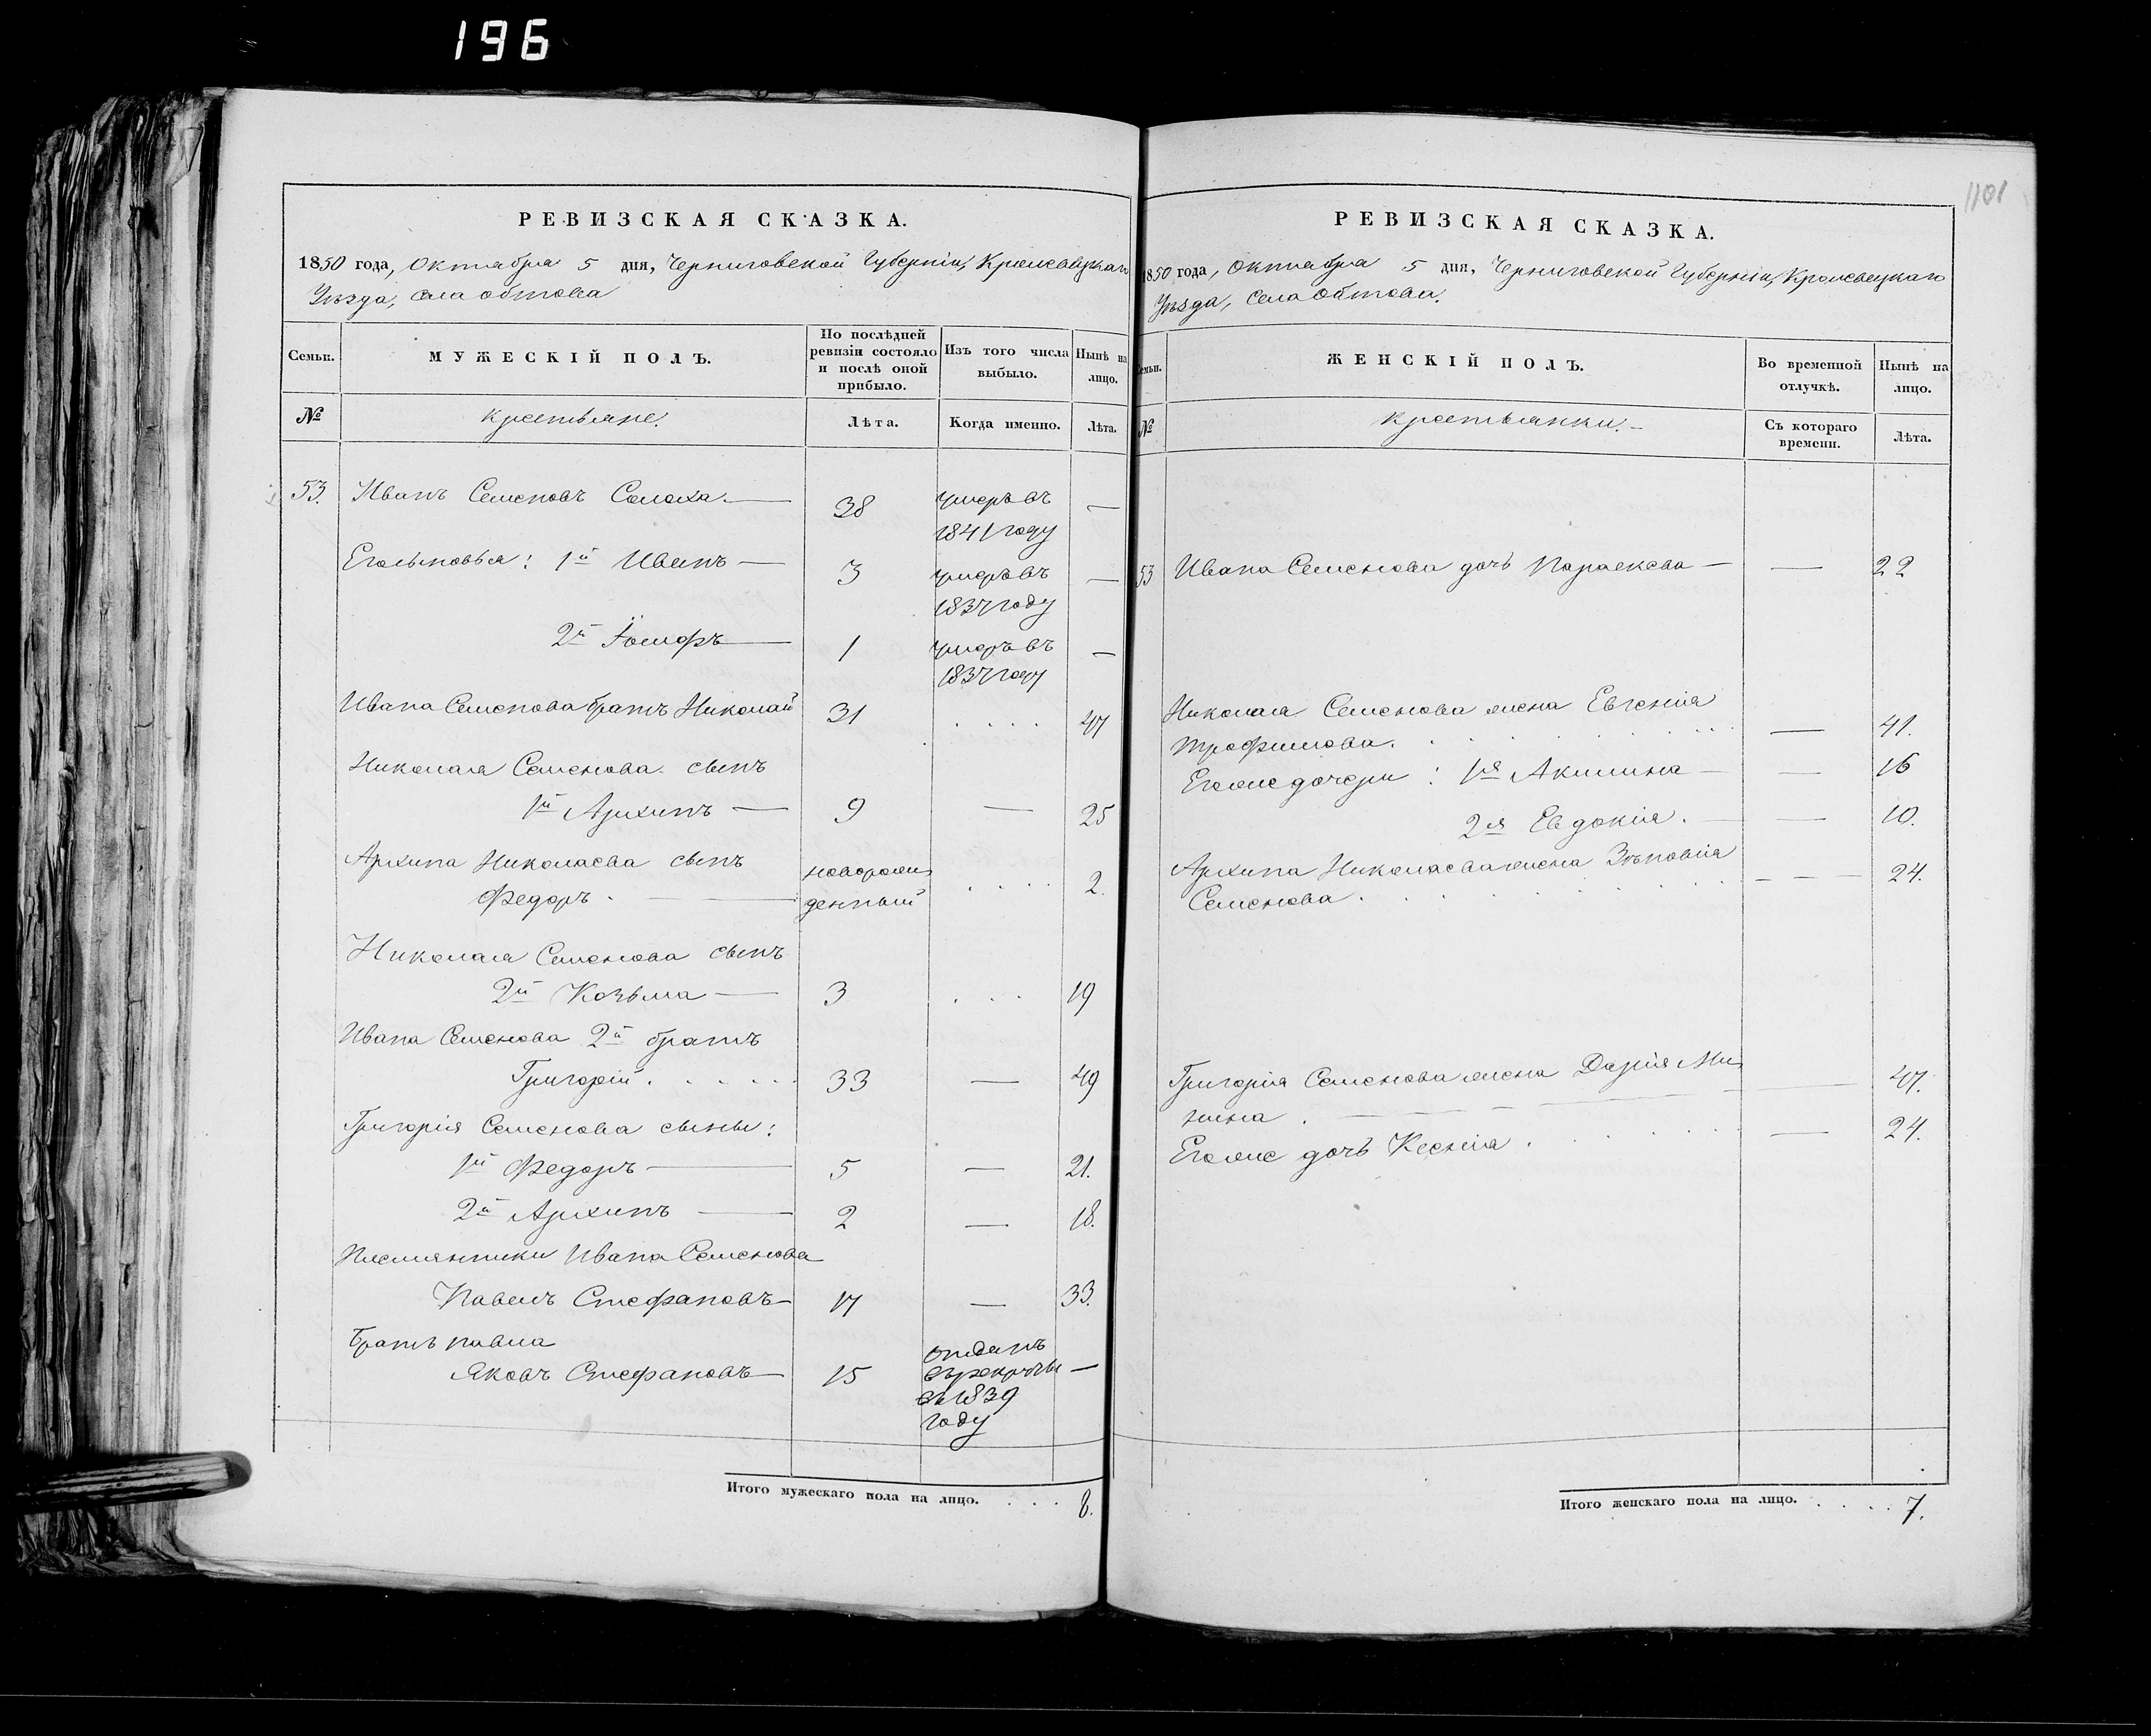 196
1101
РЕВИЗСКАЯ СКАЗКА.
1850 года, Октября 5 дня, Черниговской Губернiи, Кролевецкаго
Уѣзда, села Обтова
Семьи.
МУЖЕСКІЙ ПОЛЪ.
По послѣдней ревизіи состояло и послѣ оной прибыло.
Изъ того числа выбыло.
Нынѣ на лицо.
№
Крестьяне.
Лѣта.
Когда именно.
Лѣта.
53. Иванъ Семеновъ Солоха. — 38 умеръ въ 1841 году —
Его сыновья: 1й Иванъ — 3 умеръ въ 1837 году —
2й Іосифъ — 1 умеръ въ 1837 году —
Ивана Семенова братъ Николай 31 . . . . 47
Николая Семенова сынъ
1й Архипъ — 9 — 25
Архипа Николаева сынъ
Федоръ. — — новорожденный . . . . 2.
Николая Семенова сынъ
2й Козьма — 3 . . . 19
Ивана Семенова 2й братъ
Григорій. . . . . . 33 — 49
Григорія Семенова сыны:
1й Федоръ — 5 — 21.
2й Архипъ — 2 — 18.
Племянники Ивана Семенова
Павелъ Стефановъ — 17 — 33.
Братъ Павла
Яковъ Стефановъ — 15 отданъ въ рекруты въ 1839 году —
Итого мужескаго пола на лицо. . . . 8.
РЕВИЗСКАЯ СКАЗКА.
1850 года, Октября 5 дня, Черниговской Губерніи, Кролевецкаго
Уѣзда, села Обтова.
Семьи.
ЖЕНСКІЙ ПОЛЪ.
Во временной отлучкѣ.
Нынѣ на лицо.
№
Крестьянки. —
Съ котораго времени.
Лѣта.
53 Ивана Семенова дочь Параскева — — 22
Николая Семенова жена Евгенія
Трофимова. . . . . — 41.
Его же дочери: 1я Акилина — — 16
2я Евдокія. — — 10.
Архипа Николаева жена Зѣновія
Семенова. . . . . — — — 24.
Григорія Семенова жена Дарія Ми
нина. — — — — 47.
Его же дочь Ксенія. . . . . — 24.
Итого женскаго пола на лицо. . . . . 7.